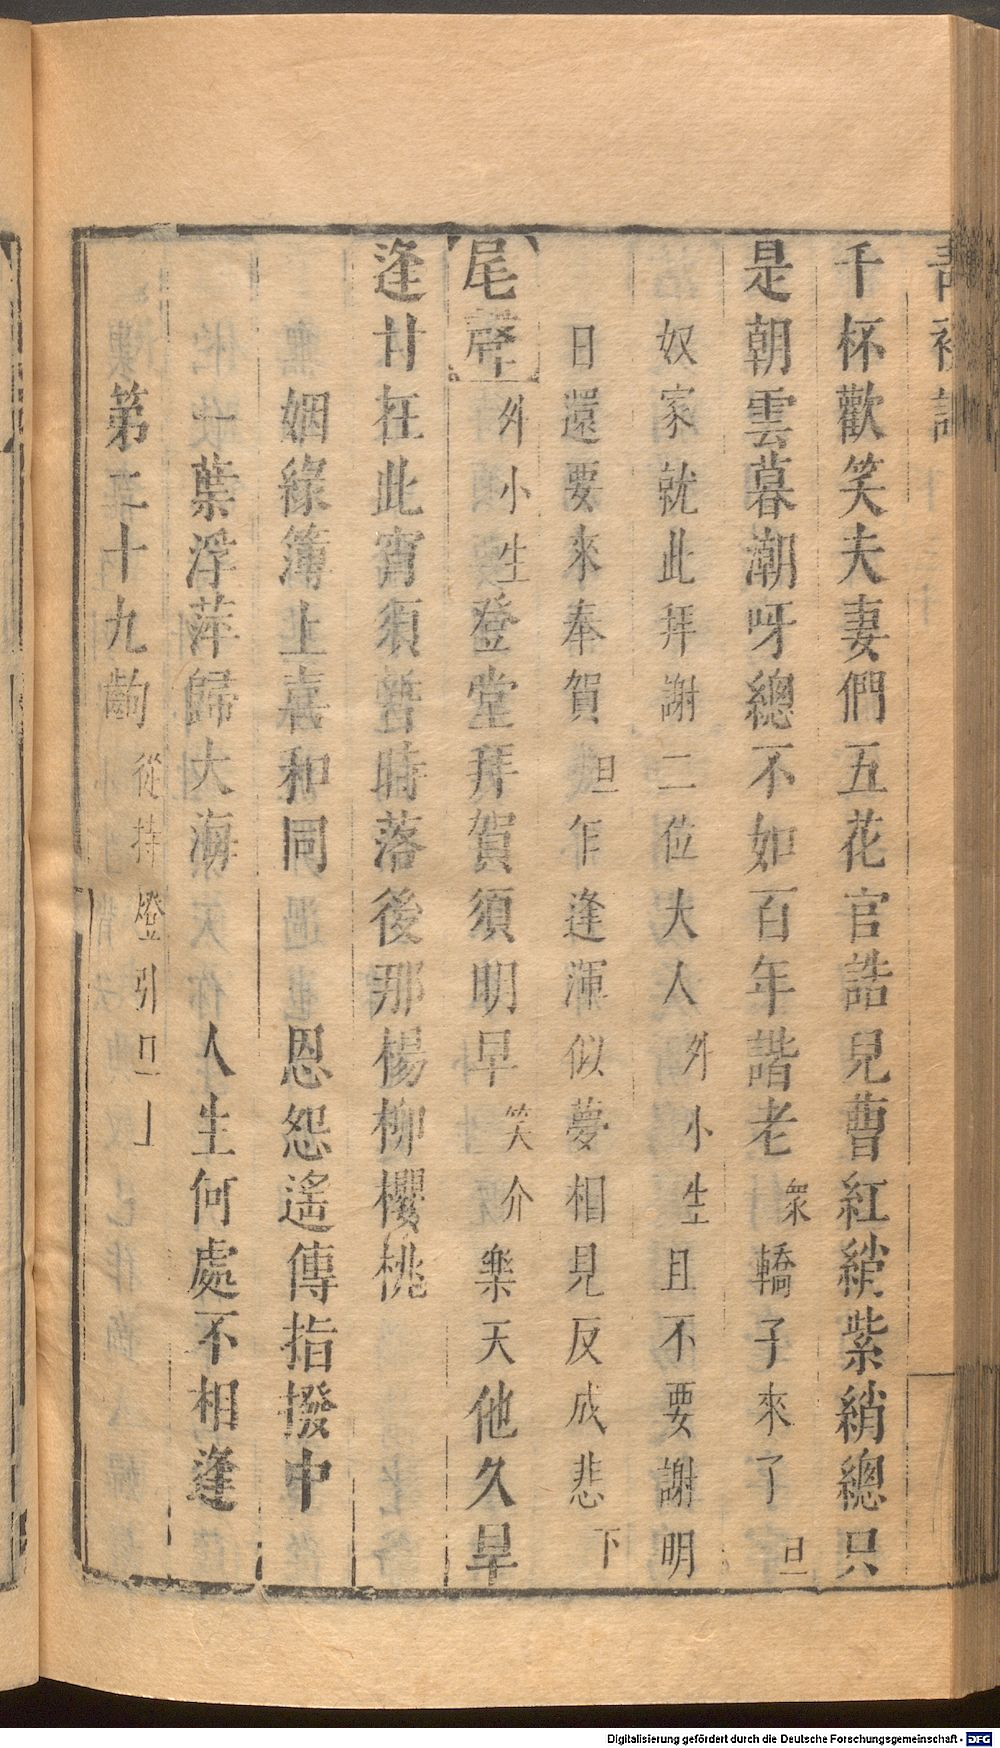 千杯歡笑夫妻們五花官誥兒曹紅綃紫綃總只
是朝雲暮潮呀總不如百年諧老衆轎子來了旦
奴家就此拜謝二位大人外小生且不要謝明
日還要來奉賀旦乍逢渾似夢相見反成悲下
尾聲外小生登堂拜賀須明早笑介樂天他久旱
逢甘在此宵須暫時落後那楊柳櫻桃
姻緣簿上喜和同　恩怨遙傳指撥中
一葉浮萍歸大海　人生何處不相逢
第二十九齣從持燈引旦上
Digitalisierung gefördert durch die Deutsche Forschungsgemeinschaft - DFG